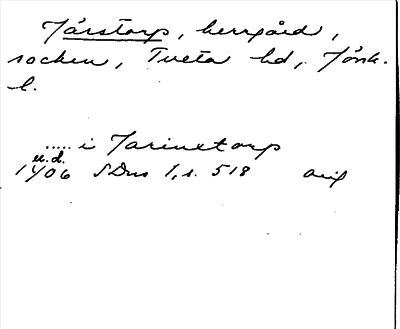 Järstorp, herrgård,
socken, Tveta hd, Jönk.
l.
..... i Jarinetorp
u.d.
1406 SDns 1, s. 518 orig